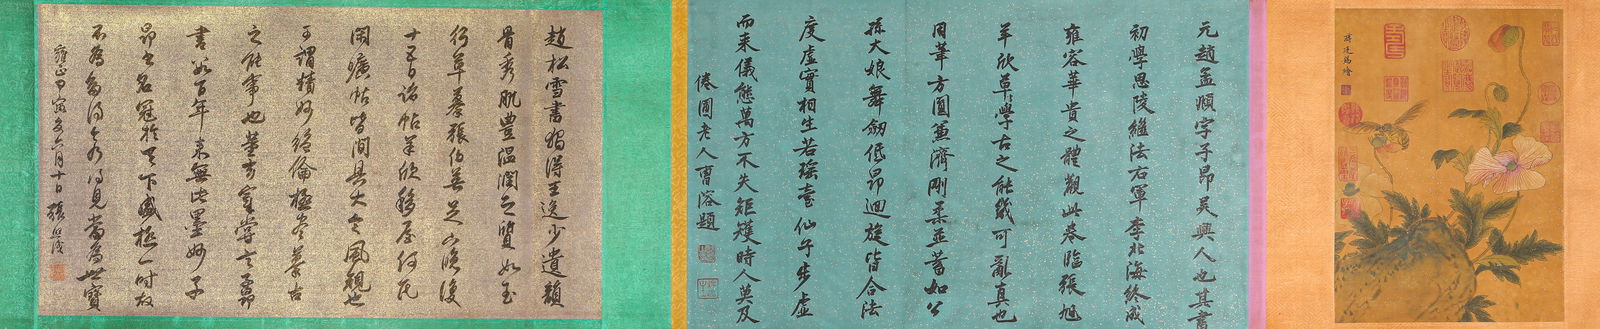 蔣廷錫繪
元趙孟頫字子昂吳興人也其書
初學思陵繼法右軍李北海終成
雍容華貴之體觀此卷臨張旭
羊欣草學古之能幾可亂真也
用筆方圓兼濟剛柔並蓄如公
孫大娘舞劍低昂迴旋皆合法
度虛實相生若瑤臺仙子步虛
而來儀態萬方不失矩矱時人莫及
倦圃老人曹溶題
趙松雪書獨得王逸少遺韻
骨秀肌豐溫潤之質如玉
行草摹張伯英足以喚後
十五日諸帖羊欣移屋何瓦
閑曠帖皆間具大令風規也
可謂精妙絕倫極盡摹古
之能事也華亭宗伯嘗言子昂
書數百年來無此墨妙子
昂書名冠於天下盛極一時友
不為多得今乃得見當為世寶
雍正甲寅冬六月十日張照識